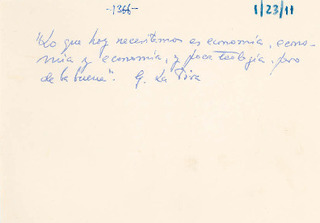 -1366-
1/23/11
"Lo que hoy necesitamos es economía, econo-
mía y economía, y poca teología, pero
de la buena". G. La Pira